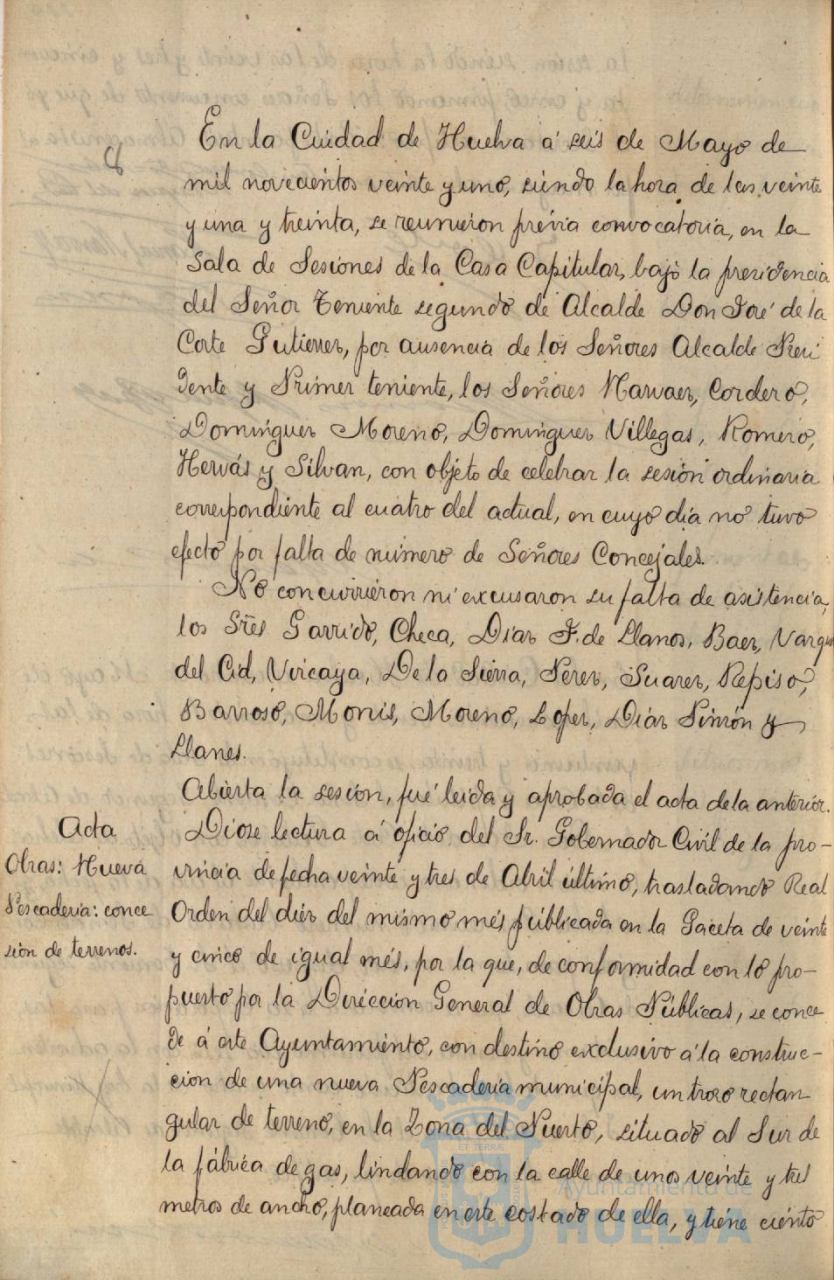 8
En la Cuidad de Huelva á seis de Mayo de
mil novecientos veinte y uno, siendo la hora de las veinte
y una y treinta, se reunieron prévia convocatoria, en la
Sala de Sesiones de la Casa Capitular, bajo la presidencia
del Señor Teniente segundo de Alcalde Don José de la
Corte Gutierrez, por ausencia de los Señores Alcalde Presi
dente y Primer teniente, los Señores Narvaez, Cordero,
Dominguez Moreno, Dominguez Villegas, Romero,
Hervás y Silvan, con objeto de celebrar la sesión ordinaria
correspondiente al cuatro del actual, en cuyo dia no tuvo
efecto por falta de número de Señores Concejales.
No concurrieron ni excusaron su falta de asistencia,
los Sres Garrido, Checa, Diaz F. de Llanos, Baez, Vargas
del Cid, Vizcaya, De la Sierra, Perez, Suarez, Repiso,
Barroso, Monis, Moreno, Lopez, Diáz Simón y
Llanes.
Abierta la sesion, fué leida y aprobada el acta de la anterior.
Acta
Obras: Nueva
Pescaderia: conce
sión de terrenos.
Diose lectura á oficio del Sr. Gobernador Civil de la pro-
vincia de fecha veinte y tres de Abril último, trasladando Real
Orden del diez del mismo més públicada en la Gaceta de veinte
y cinco de igual més, por la que, de conformidad con lo pro-
puesto por la Dirección General de Obras Públicas, se conce
de á este Ayuntamiento, con destino exclusivo á la construc-
cion de una nueva Pescaderia municipal, un trozo rectan
gular de terreno, en la Zona del Puerto, situado al Sur de
la fábrica de gas, lindando con la calle de unos veinte y tres
metros de ancho, planeada en este costado de ella, y tiene ciento
Ayuntamiento de
HUELVA